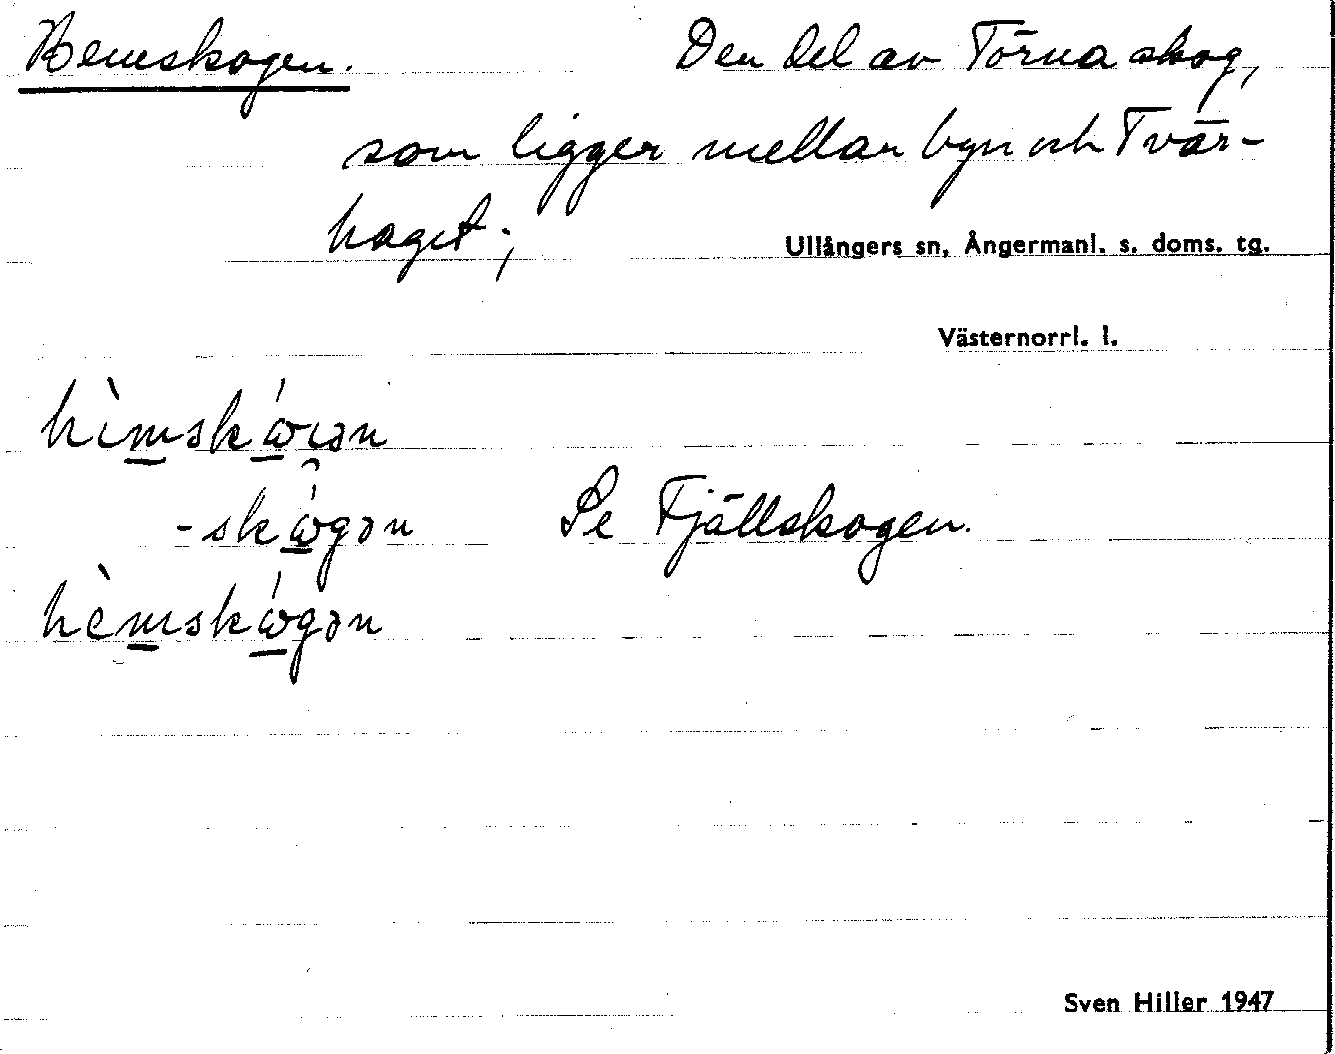 Hemskogen.
Den del av Törna skog,
som ligger mellan byn och Tvär-
haget;
Ullångers sn, Ångermanl. s. doms. tg.
Västernorrl. l.
hìmskɷ́ɩən
-skɷ́gən Se Fjällskogen.
hèmskɷ́gən
Sven Hiller 1947